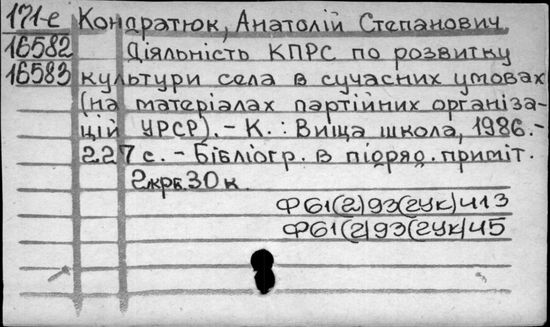 171-е Кондратюк, Анатолій Степанович
16582 Діяльність КПРС по розвитку
16583 культури села в сучасних умовах
(на матеріалах партійних організа-
цій УРСР). - К. : Вища школа, 1986. -
227 с. - Бібліогр. в підряд. приміт.
2крб. 30 к.
Ф61(2)93(2Ук)Ч13
Ф61(2)93(2Ук)Ч5